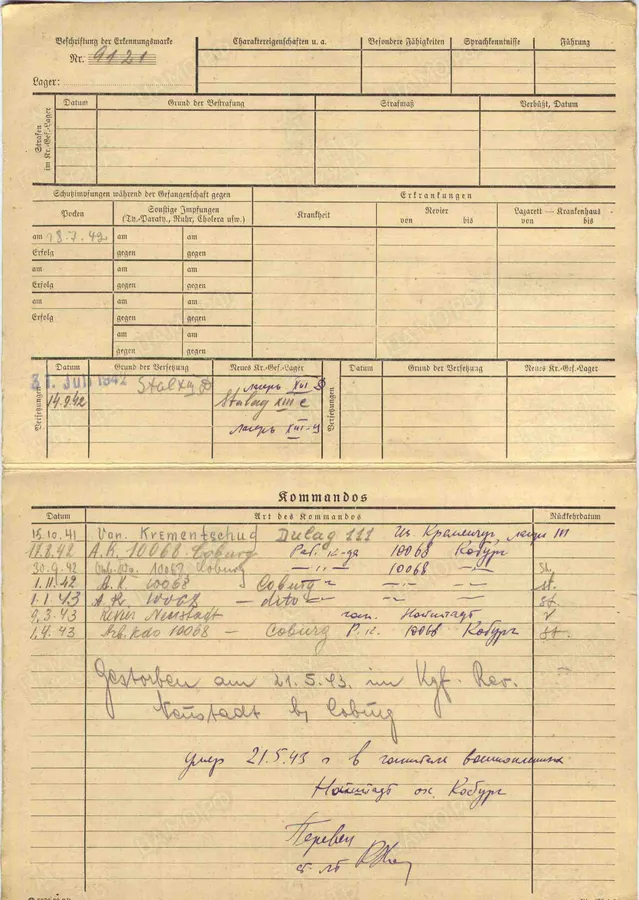 Beschriftung der Erkennungsmarke
Nr. 9121
Lager:
Charaktereigenschaften u. a.
Besondere Fähigkeiten
Sprachkenntnisse
Führung
Strafen im Kr.-Gef.-Lager
Datum
Grund der Bestrafung
Strafmaß
Verbüßt, Datum
Schutzimpfungen während der Gefangenschaft gegen
Erkrankungen
Pocken
Sonstige Impfungen
(Ty.-Paraty., Ruhr, Cholera usw.)
Krankheit
Revier
von bis
Lazarett — Krankenhaus
von bis
am 18.7.42 am am
Erfolg gegen gegen
am am am
Erfolg gegen gegen
am am am
Erfolg gegen gegen
am am
gegen gegen
Versetzungen
Datum Grund der Versetzung Neues Kr.-Gef.-Lager
Versetzungen
Datum Grund der Versetzung Neues Kr.-Gef.-Lager
31. Juli 1942 Stalag лагерь XIII D
14.9.42 Stalag XIII C
лагерь XIII-Ц
Kommandos
Datum Art des Kommandos Rückkehrdatum
15.10.41 Von Krementschug Dulag 111 Из Кременчуг, лагерь 111
17.8.42 A.K. 10068 Coburg Раб. к-да 10068 Кобург
30.9.42 10068 Coburg — " — 10068 — " — St.
1.11.42 A.K. 10068 Coburg — " — St.
1.1.43 A.K. 10068 — dito — St.
9.3.43 Revier Neustadt
1.4.43 Arb. Kdo 10068 — Coburg Р.к. 10068 Кобург St.
Gestorben am 21.5.43. im Kgf. Rev.
Neustadt b. Coburg
умер 21.5.43 г в военнопленных
Найштадт ок. Кобург
Перевел